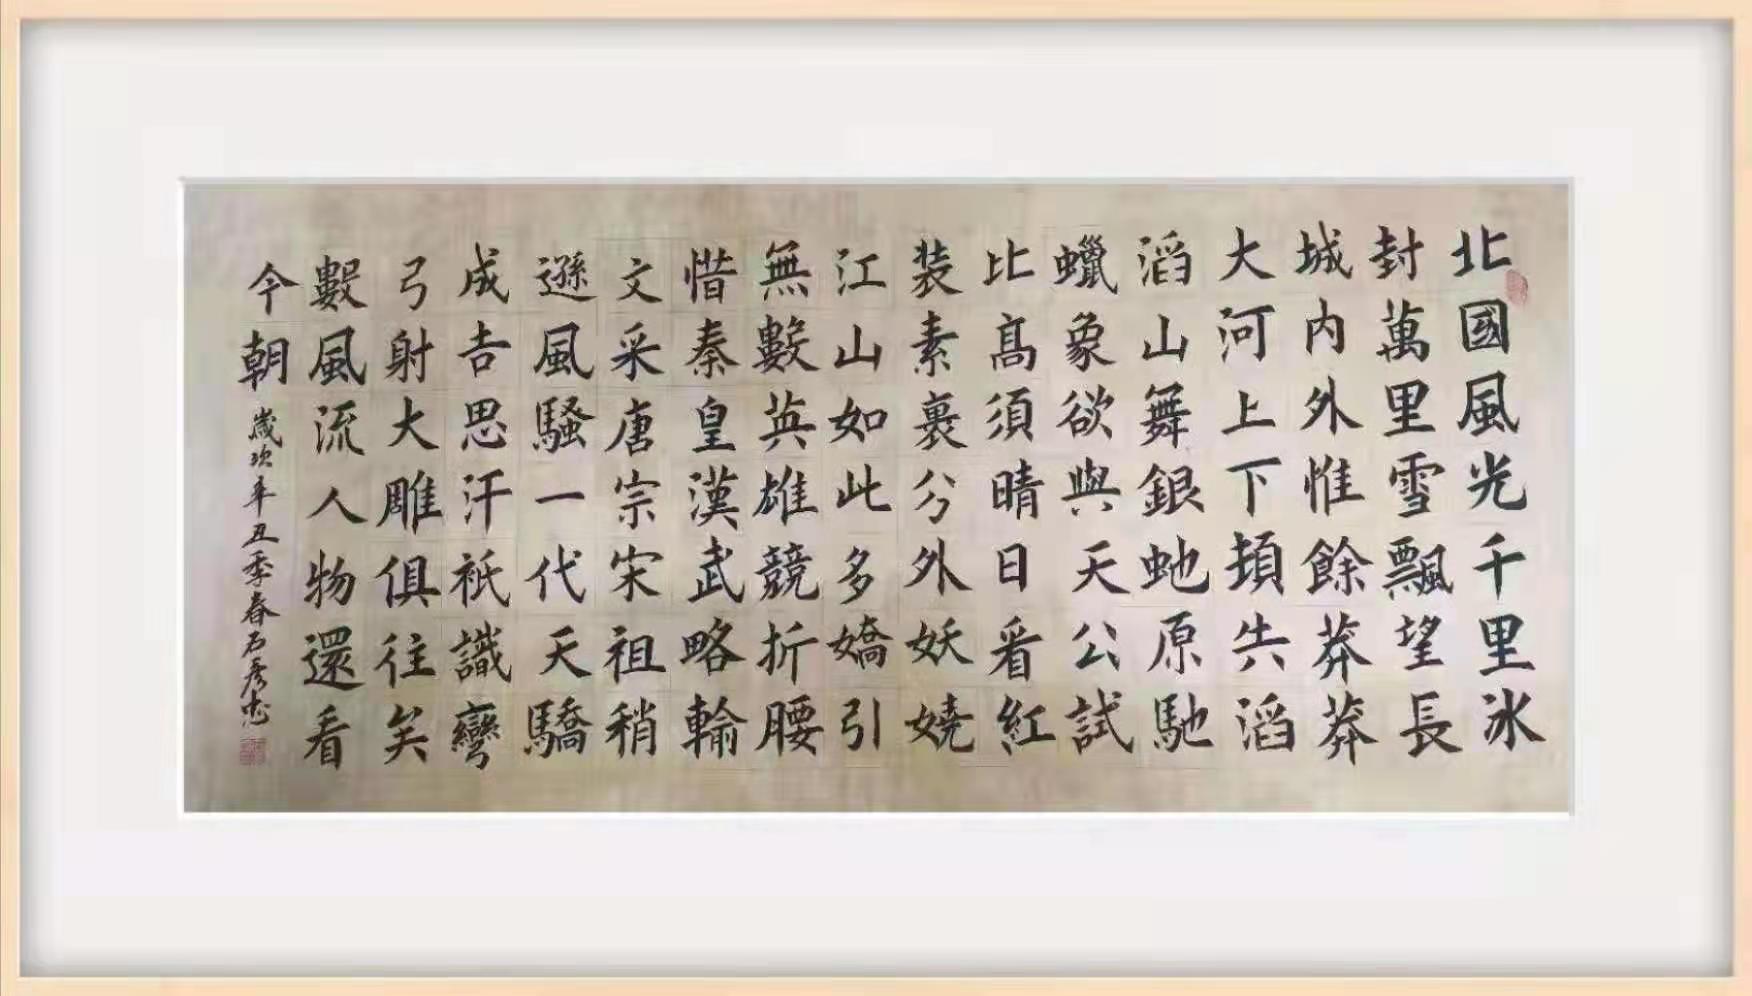 北國風光千里冰
封萬里雪飄望長
城内外惟餘莽莽
大河上下頓失滔
滔山舞銀虵原馳
蠟象欲與天公試
比髙須晴日看紅
装素裹分外妖嬈
江山如此多嬌引
無數英雄競折腰
惜秦皇漢武略輸
文采唐宗宋祖稍
遜風騷一代天驕
成吉思汗衹識彎
弓射大雕俱往矣
數風流人物還看
今朝
歲次辛丑季春石彦忠